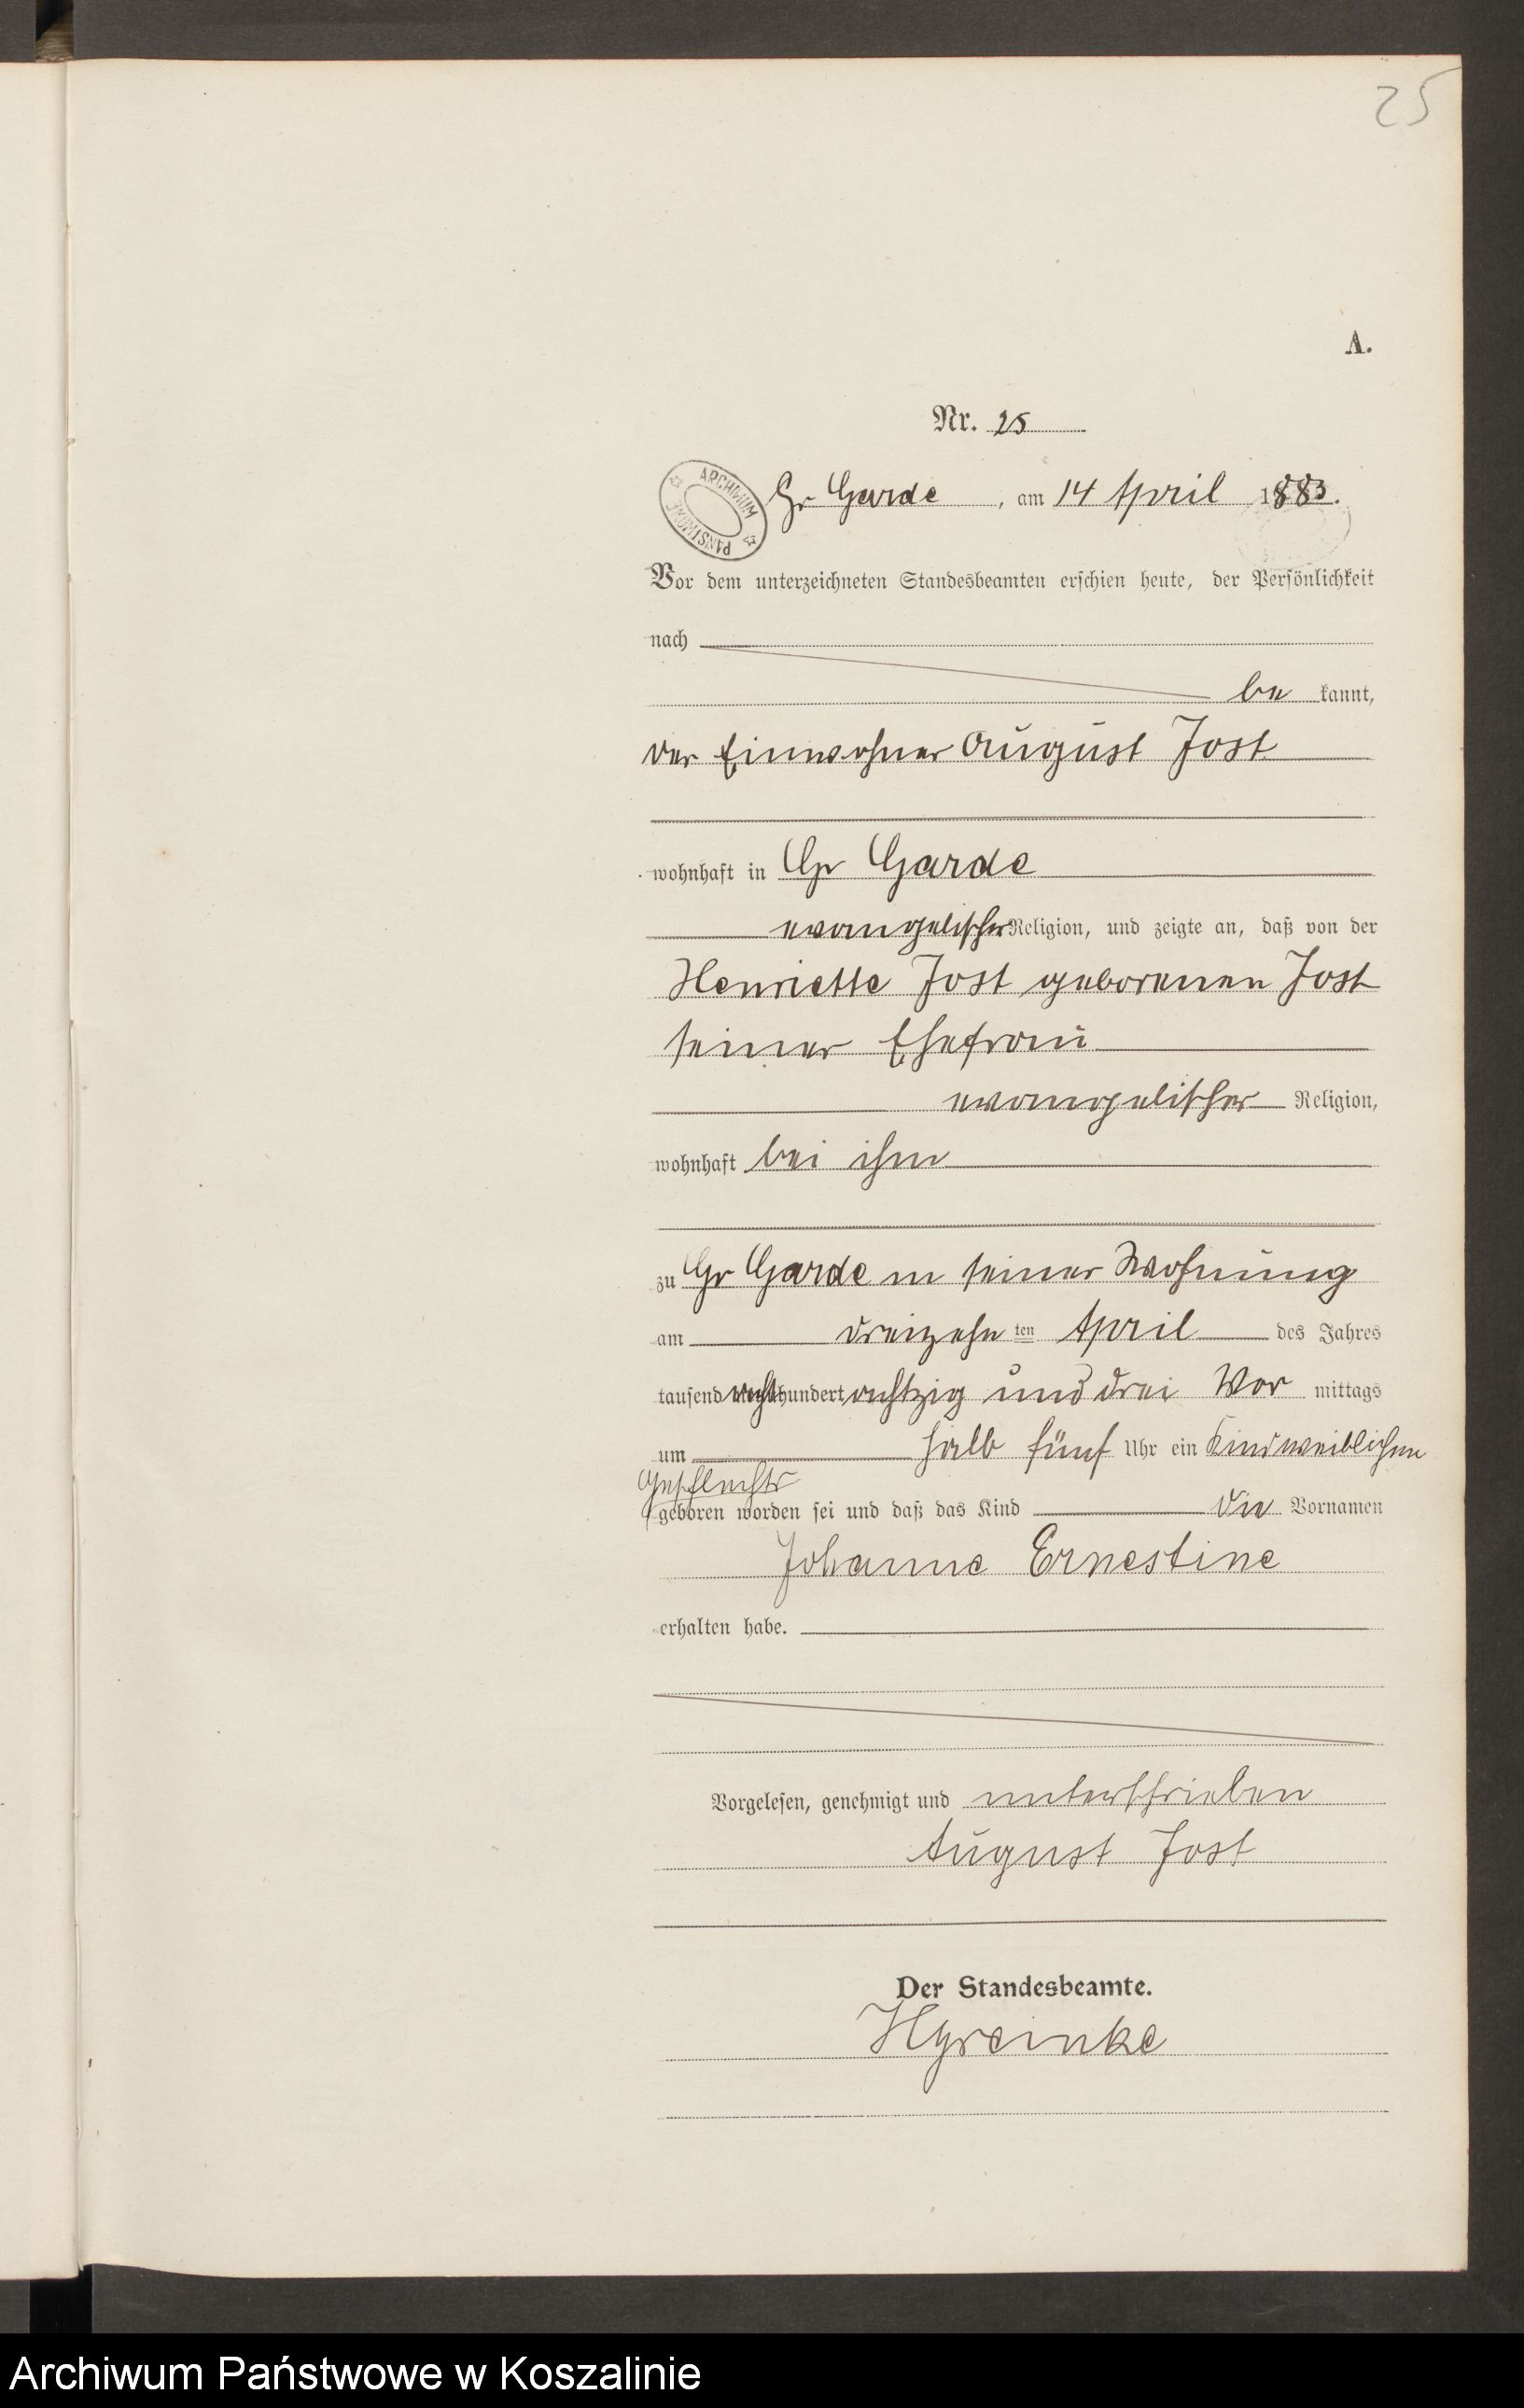 25
A.
Nr. 25
ARCHIWUM PAŃSTWOWE
Gr Garde, am 14 April 1883.
Vor dem unterzeichneten Standesbeamten erschien heute, der Persönlichkeit
nach
be kannt,
der Einwohner August Jost
wohnhaft in Gr Garde
evangelischer Religion, und zeigte an, daß von der
Henriette Jost geborenen Jost
seiner Ehefrau
evangelischer Religion,
wohnhaft bei ihm
zu Gr Garde in seiner Wohnung
am dreizehn ten April des Jahres
tausend achthundert achtzig und drei Vor mittags
um halb fünf Uhr ein Kind weiblichen
Geschlechts
geboren worden sei und daß das Kind die Vornamen
Johanne Ernestine
erhalten habe.
Vorgelesen, genehmigt und unterschrieben
August Jost
Der Standesbeamte.
Archiwum Państwowe w Koszalinie